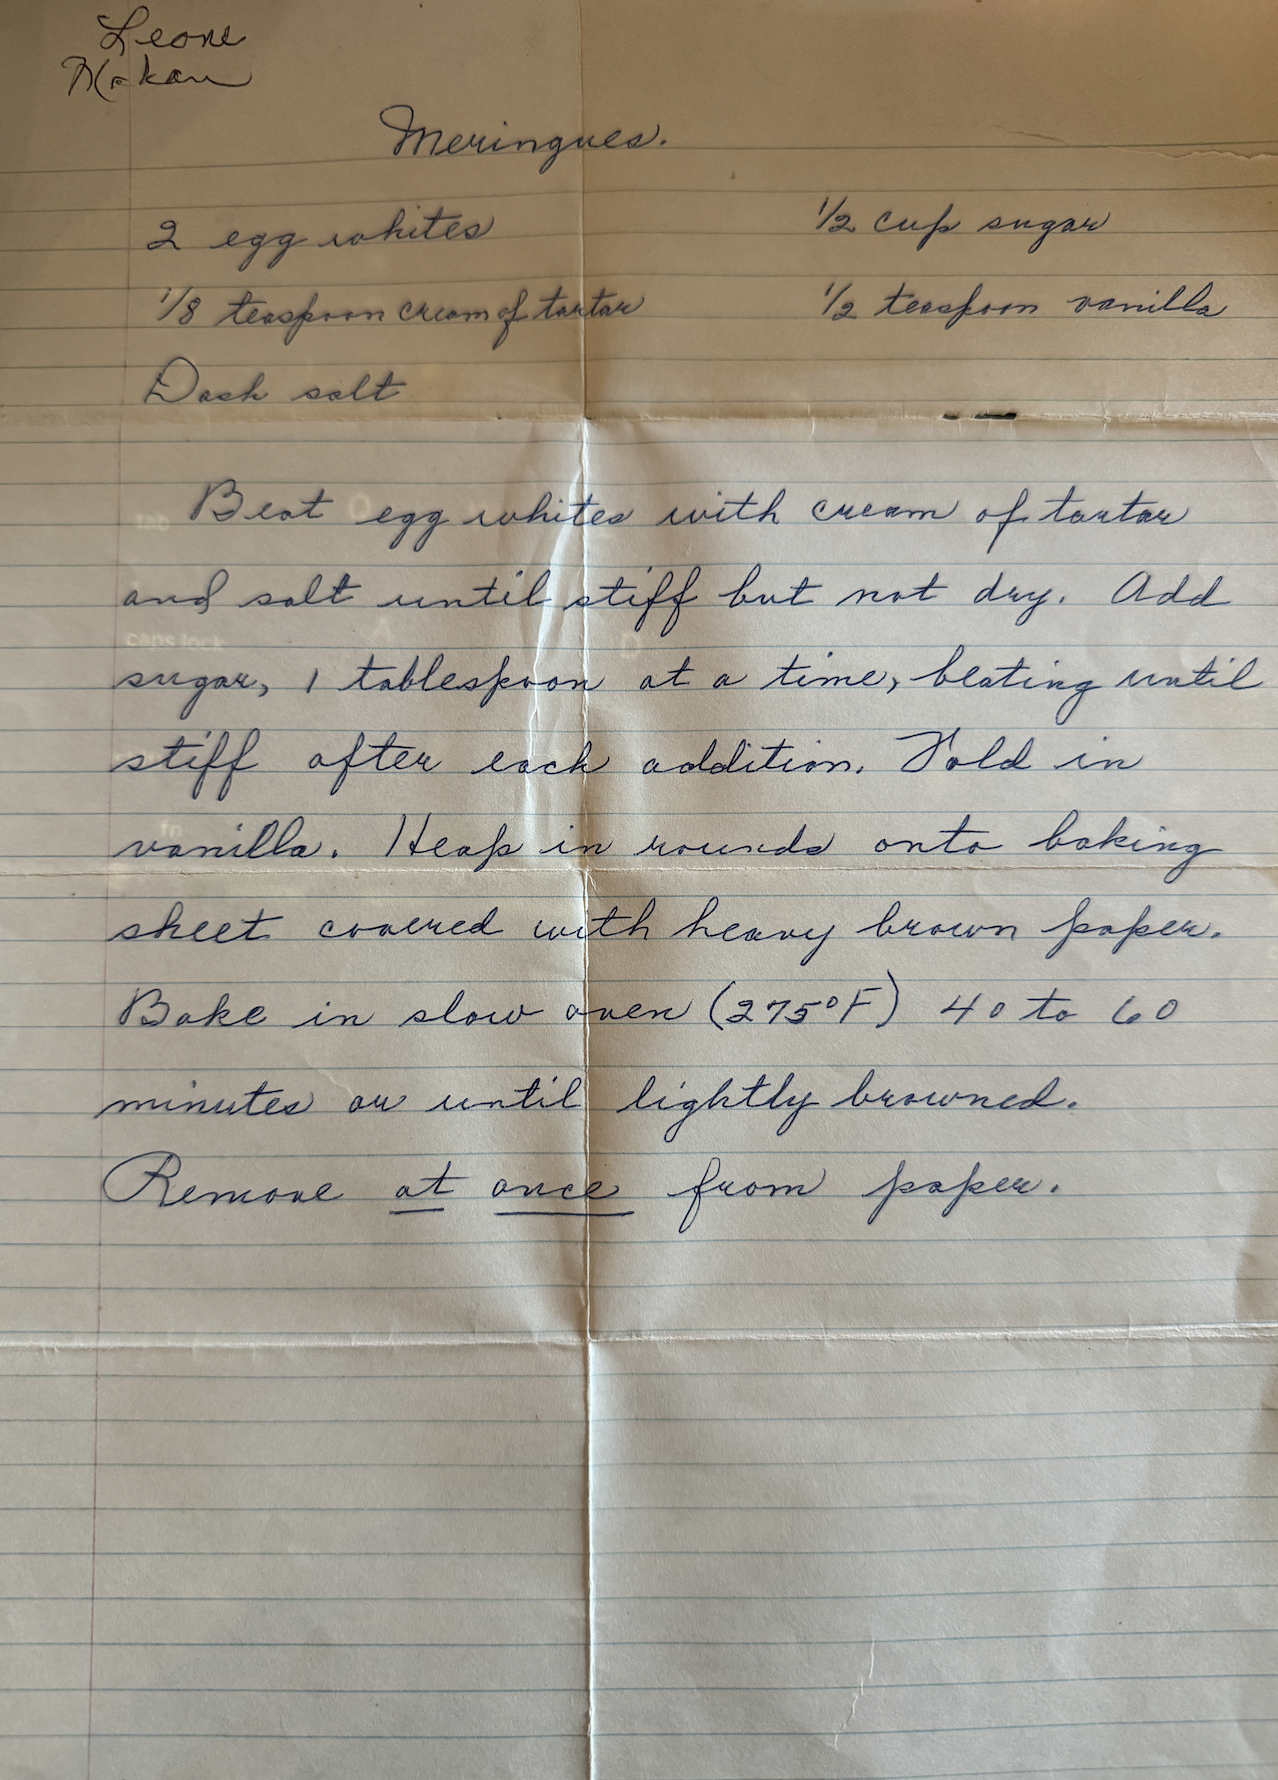 Leone
Meringues.
2 egg whites
1/2 cup sugar
1/8 teaspoon cream of tartar
1/2 teaspoon vanilla
Dash salt
Beat egg whites with cream of tartar
and salt until stiff but not dry. Add
sugar, 1 tablespoon at a time, beating until
stiff after each addition. Fold in
vanilla. Heap in rounds onto baking
sheet covered with heavy brown paper.
Bake in slow oven (275°F) 40 to 60
minutes or until lightly browned.
Remove at once from paper.